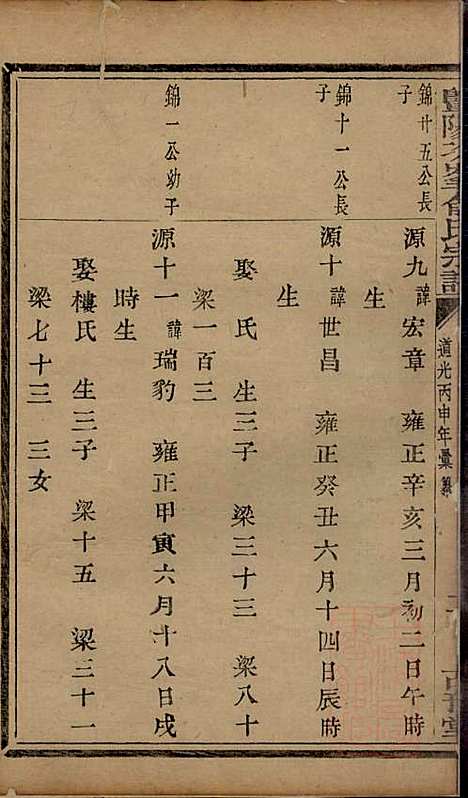 道光丙申年彙纂
錦廿五公長子
源九 諱宏章 雍正辛亥三月初二日午時
生
錦十一公長子
源十 諱世昌 雍正癸丑六月十四日辰時
生
娶 氏 生三子 梁三十三 梁八十
梁一百三
錦一公幼子
源十一 諱瑞豹 雍正甲寅六月十八日戌
時生
娶樓氏 生三子 梁十五 梁三十一
梁七十三 三女